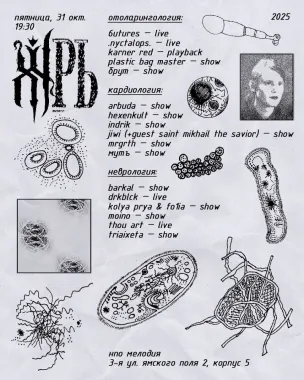 пятница, 31 окт.
19:30
2025
ЖРЬ
отоларингология:
6utures — live
.nyctalops. — live
karner red — playback
plastic bag master — show
брут — show
кардиология:
arbuda — show
hexenkult — show
indrik — show
jiwi (+guest saint mikhail the savior) — show
mrgrth — show
муть — show
неврология:
barkal — show
drkblck — live
kolya prya & fo11a — show
moino — show
thou art — live
triaixeta — show
нпо мелодия
3-я ул. ямского поля 2, корпус 5